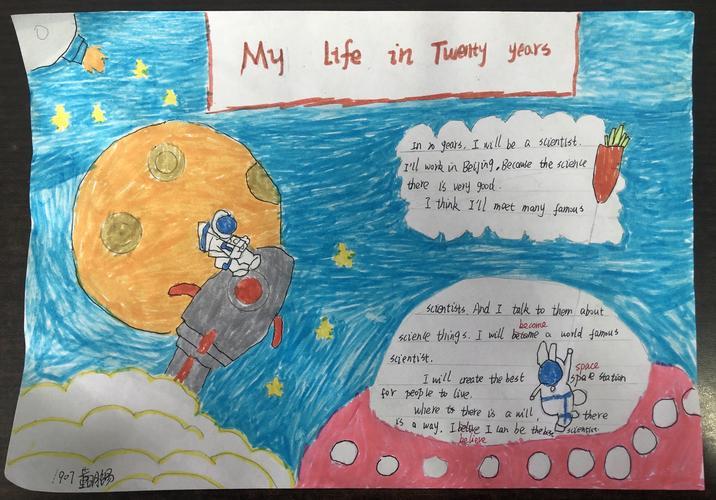 My Life in Twenty years
In 20 years, I will be a scientist.
I'll work in Beijing. Because the science
there is very good.
I think I'll meet many famous
scientists. And I talk to them about
become
science things. I will become a world famous
scientist.
space
I will create the best station
for people to live.
where there is a will, there
is a way. I belive I can be the best scientist.
believe
1907